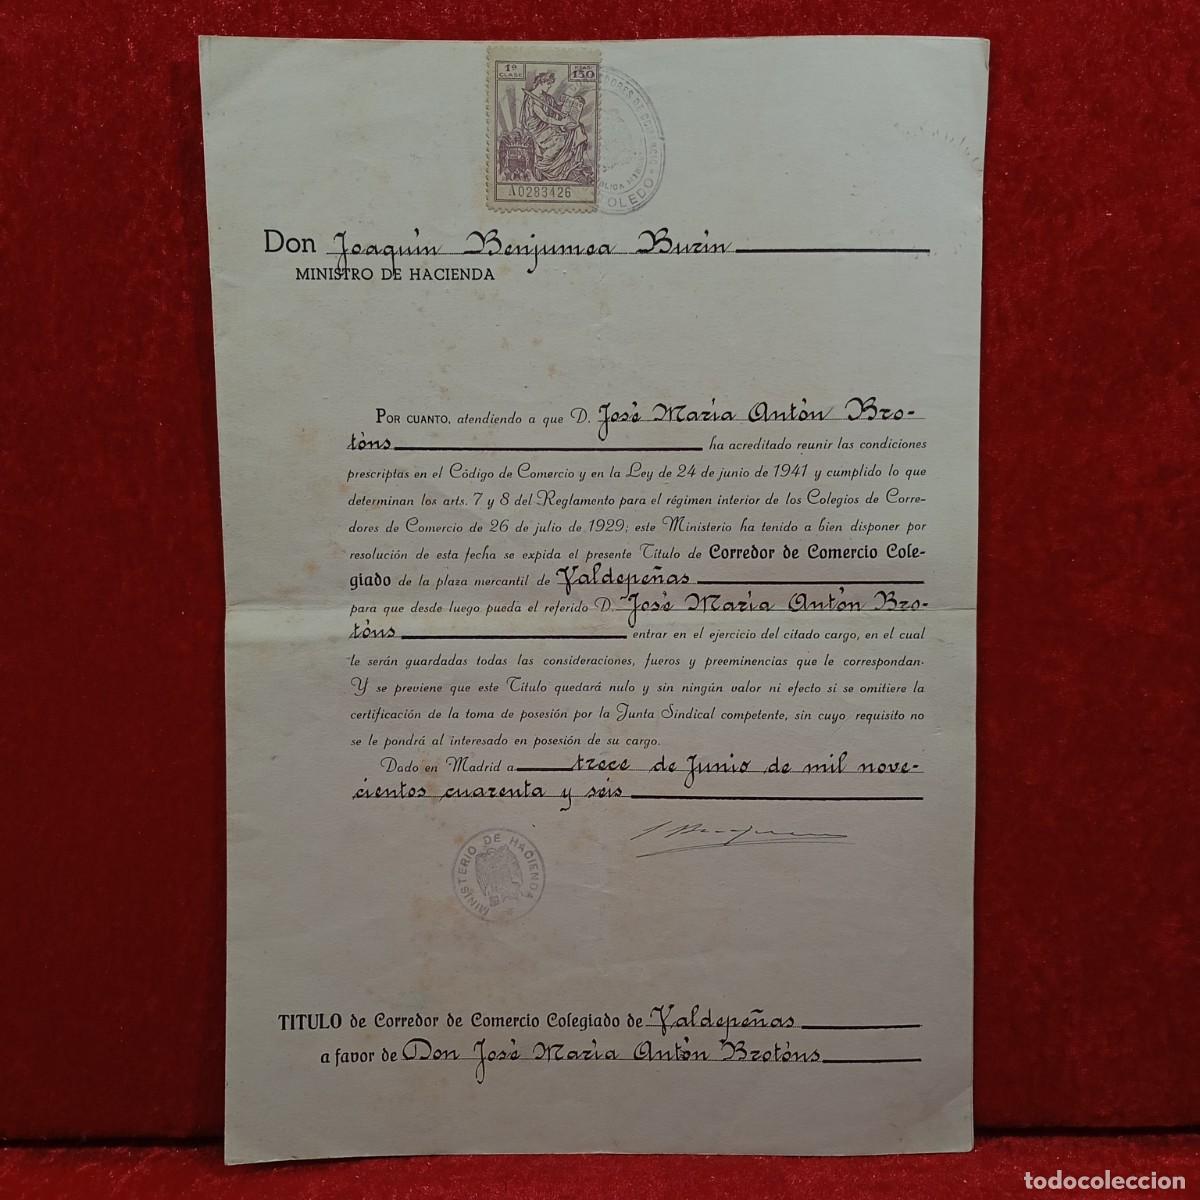 1ª CLASE
PTAS. 150
A0283426
TOLEDO
Don Joaquín Benjumea Burín
MINISTRO DE HACIENDA
POR CUANTO, atendiendo a que D. José María Antón Bro-
tóns ha acreditado reunir las condiciones
prescriptas en el Código de Comercio y en la Ley de 24 de junio de 1941 y cumplido lo que
determinan los arts. 7 y 8 del Reglamento para el régimen interior de los Colegios de Corre-
dores de Comercio de 26 de julio de 1929; este Ministerio ha tenido a bien disponer por
resolución de esta fecha se expida el presente Título de Corredor de Comercio Cole-
giado de la plaza mercantil de Valdepeñas
para que desde luego pueda el referido D. José María Antón Bro-
tóns entrar en el ejercicio del citado cargo, en el cual
le serán guardadas todas las consideraciones, fueros y preeminencias que le correspondan.
Y se previene que este Título quedará nulo y sin ningún valor ni efecto si se omitiere la
certificación de la toma de posesión por la Junta Sindical competente, sin cuyo requisito no
se le pondrá al interesado en posesión de su cargo.
Dado en Madrid a trece de Junio de mil nove-
cientos cuarenta y seis
MINISTERIO DE HACIENDA
TITULO de Corredor de Comercio Colegiado de Valdepeñas
a favor de Don José María Antón Brotóns
todocoleccion